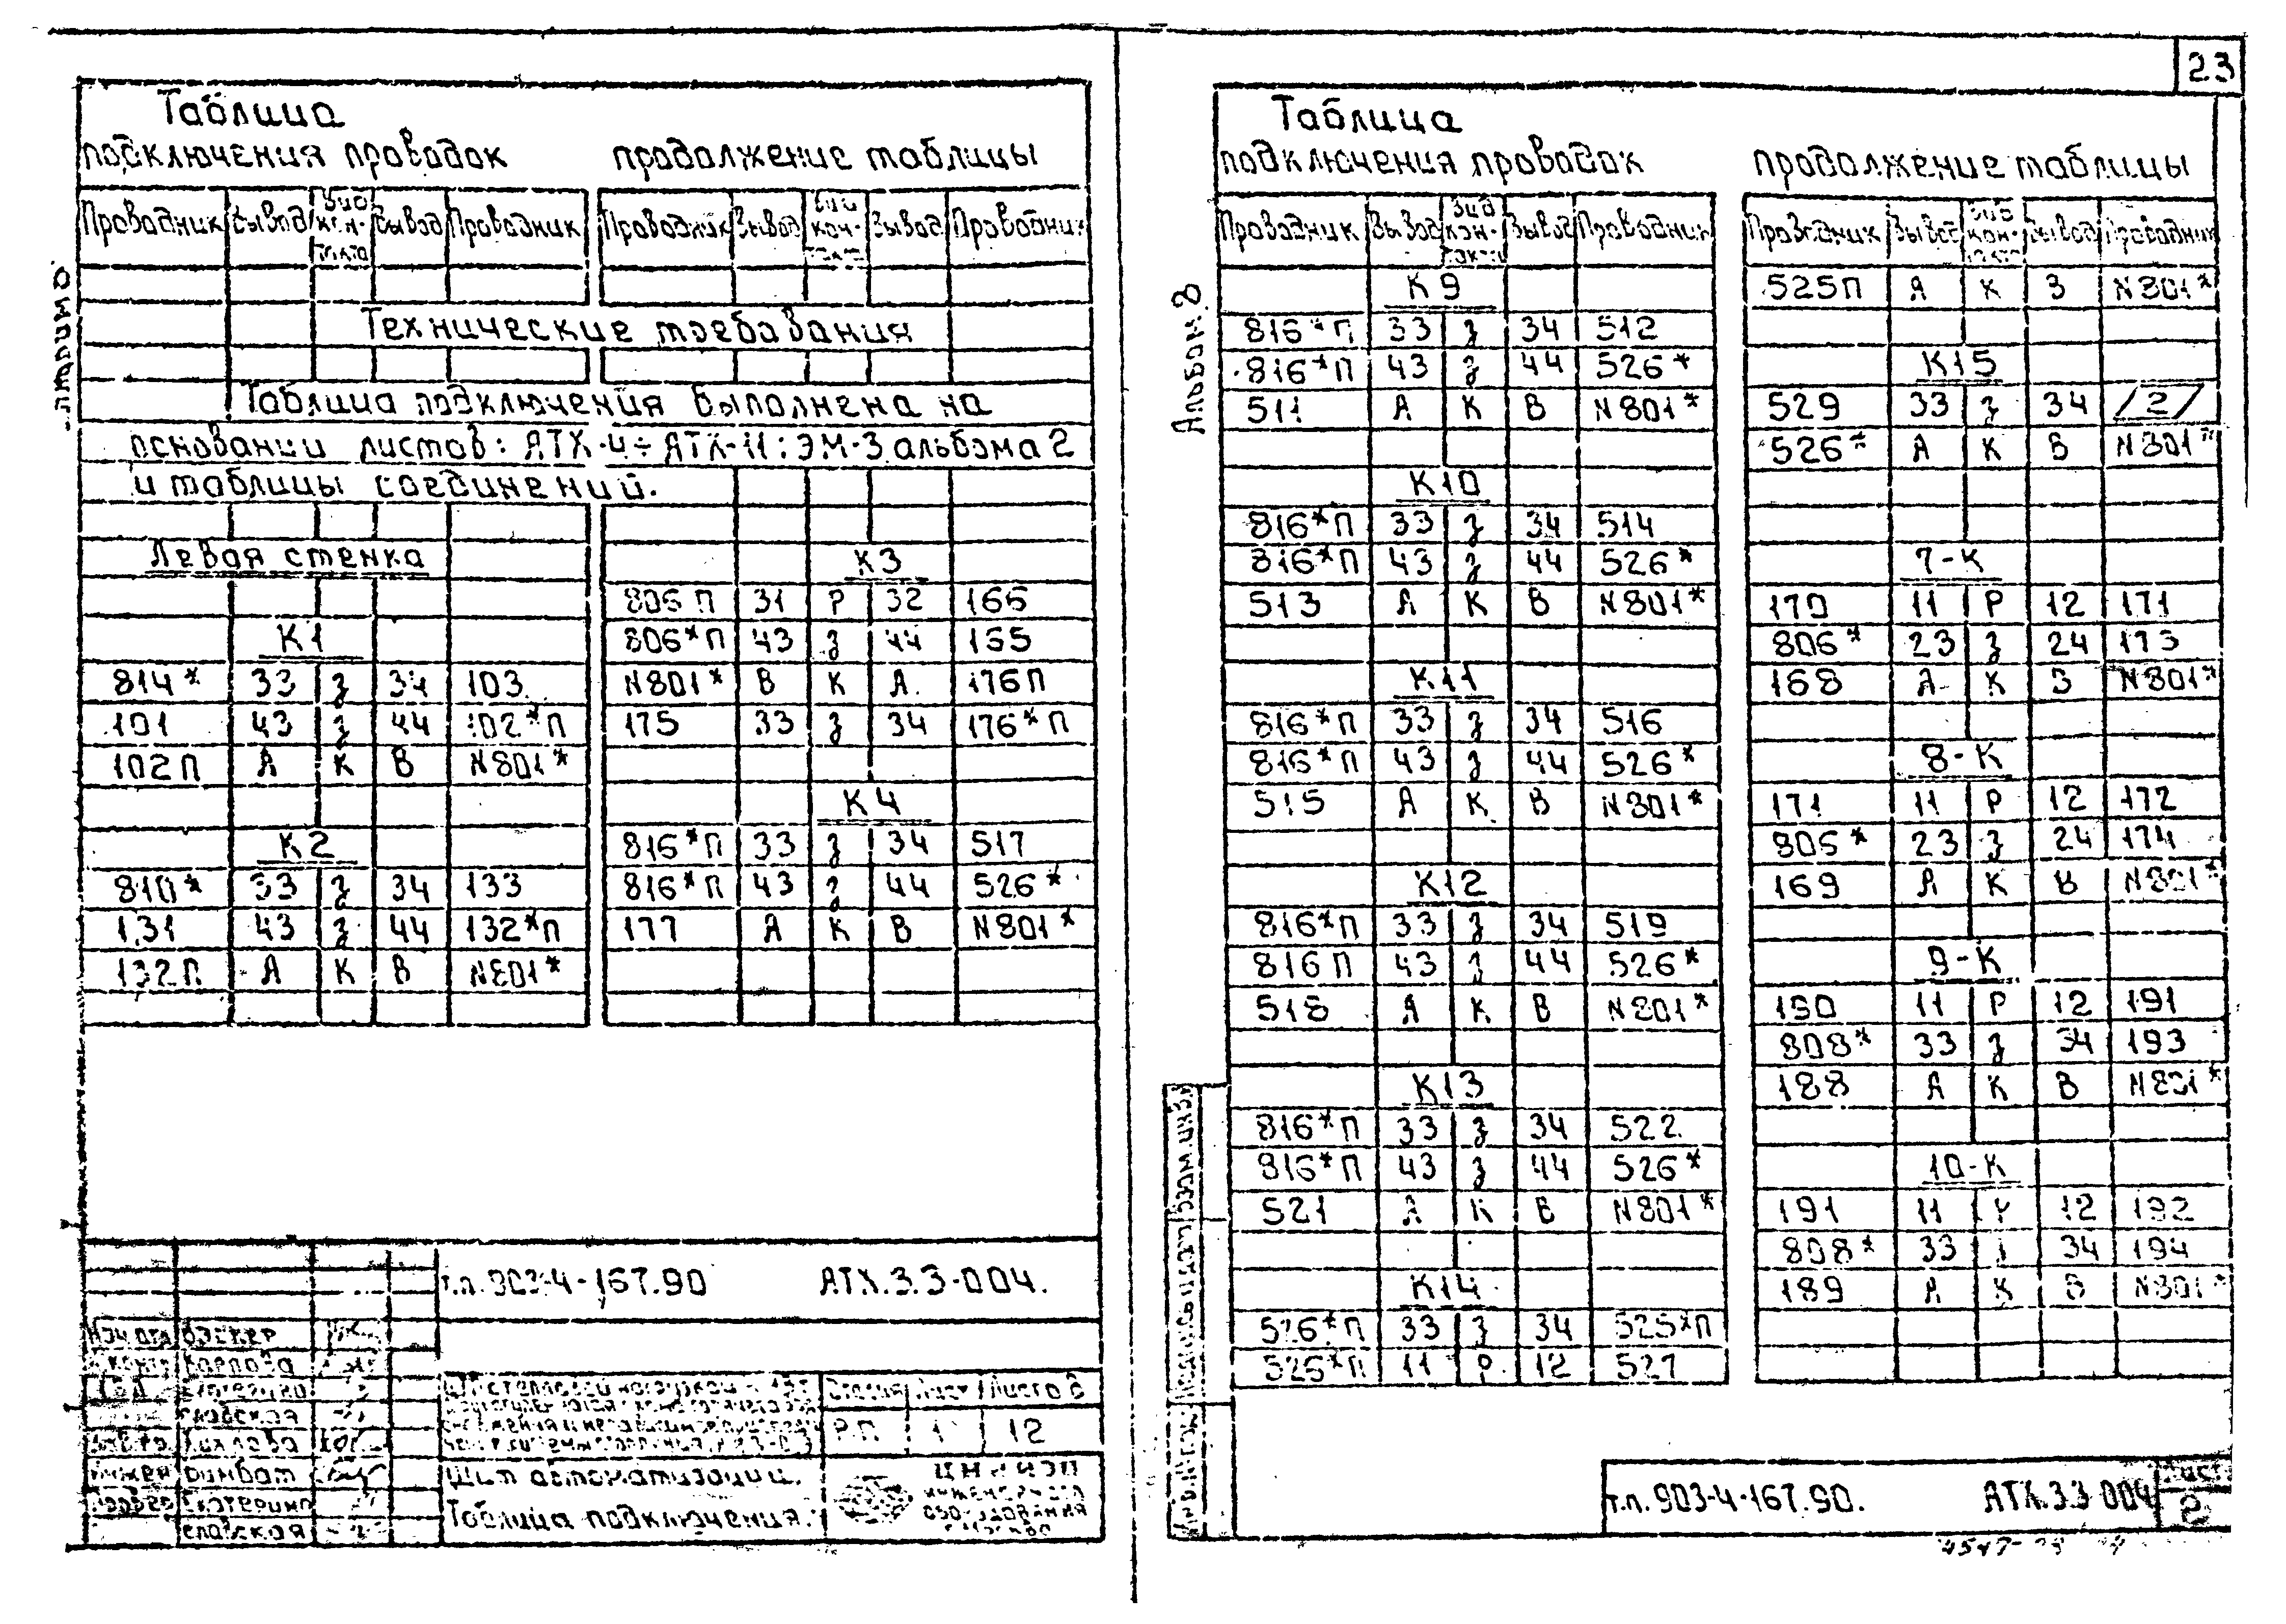 23
Таблица
подключения проводок
Проводник Вывод Вид кон-такта Вывод Проводник
Технические требования
Таблица подключения выполнена на
основании листов: АТХ-4÷АТХ-11; ЭМ-3 альбома 2
и таблицы соединений.
Левая стенка
К1
814* 33 з 34 103
101 43 з 44 102*П
102П А К В N801*
К2
810* 33 з 34 133
131 43 з 44 132*П
132П А К В N801*
продолжение таблицы
Проводник Вывод Вид кон-такта Вывод Проводник
К3
806П 31 Р 32 166
806*П 43 з 44 165
N801* В К А 176П
175 33 з 34 176*П
К4
816*П 33 з 34 517
816*П 43 з 44 526*
177 А К В N801*
т.п. 903-4-167.90 АТХ.3.3-004.
Карпова
Стадия Лист Листов
РП 1 12
Щит автоматизации.
Таблица подключения.
ЦНИИЭП
инженерного
оборудования
г. Москва
Альбом 8
Таблица
подключения проводок
Проводник Вывод Вид кон-такта Вывод Проводник
К9
816*П 33 з 34 512
816*П 43 з 44 526*
511 А К В N801*
К10
816*П 33 з 34 514
816*П 43 з 44 526*
513 А К В N801*
К11
816*П 33 з 34 516
816*П 43 з 44 526*
515 А К В N801*
К12
816*П 33 з 34 519
816П 43 з 44 526*
518 А К В N801*
К13
816*П 33 з 34 522
816*П 43 з 44 526*
521 А К В N801*
К14
526*П 33 з 34 525*П
526*П 11 Р 12 527
продолжение таблицы
Проводник Вывод Вид кон-такта Вывод Проводник
525П А К В N801*
К15
529 33 з 34 /2/
526* А К В N801*
7-К
170 11 Р 12 171
806* 23 з 24 173
168 А К В N801*
8-К
171 11 Р 12 172
806* 23 з 24 174
169 А К В N801*
9-К
190 11 Р 12 191
808* 33 з 34 193
188 А К В N801*
10-К
191 11 Р 12 192
808* 33 з 34 194
189 А К В N801*
т.п. 903-4-167.90. АТХ.3.3-004
Лист
2